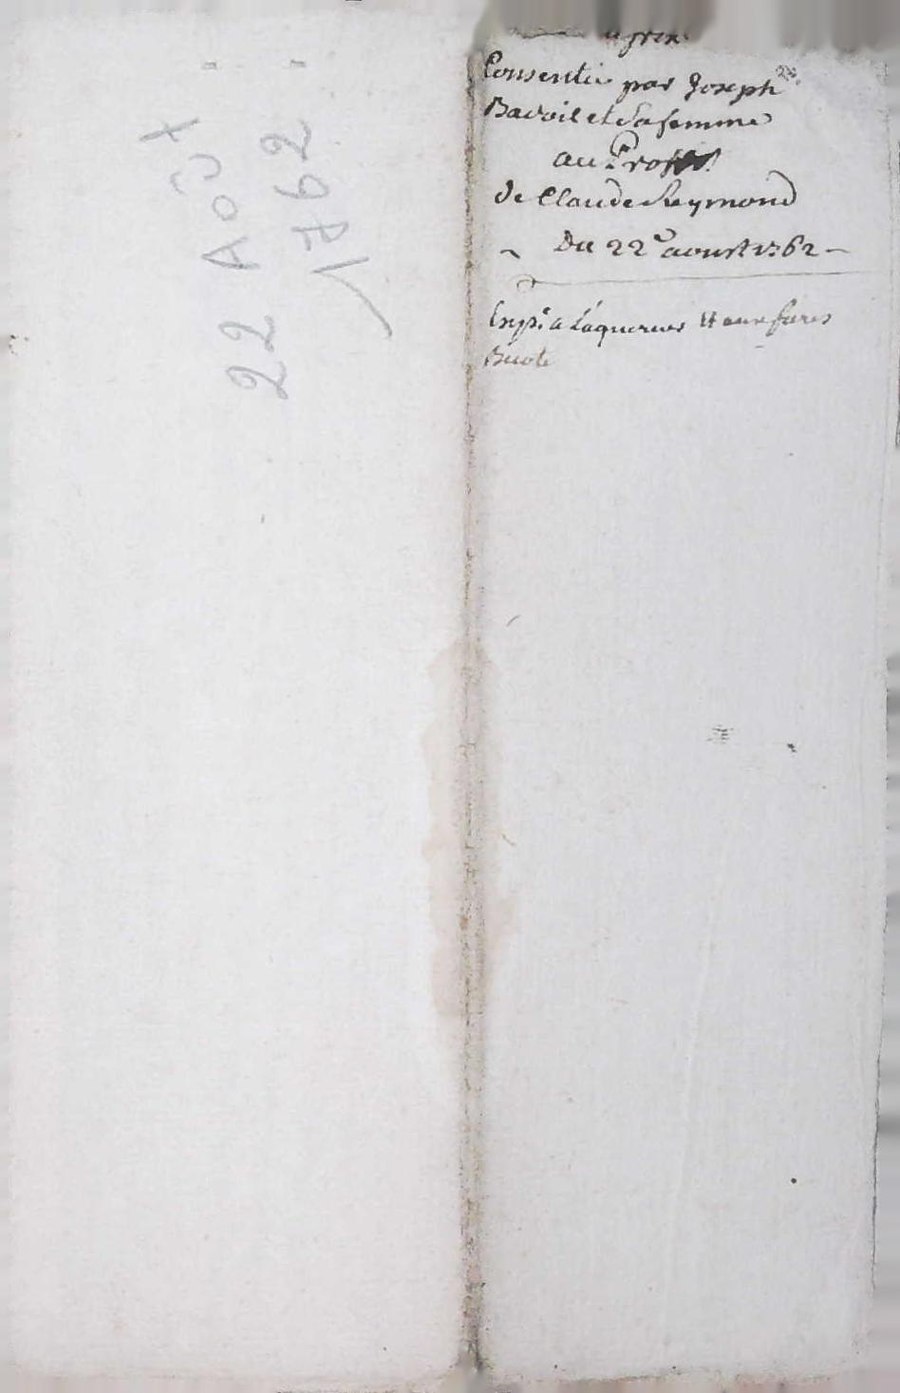 22 AOÛT
1762
Consentie par Joseph
Bavoil et Sa femme
au Profit
de Claude Reymond
Du 22e aoust 1762
Exp.e a Laquereur